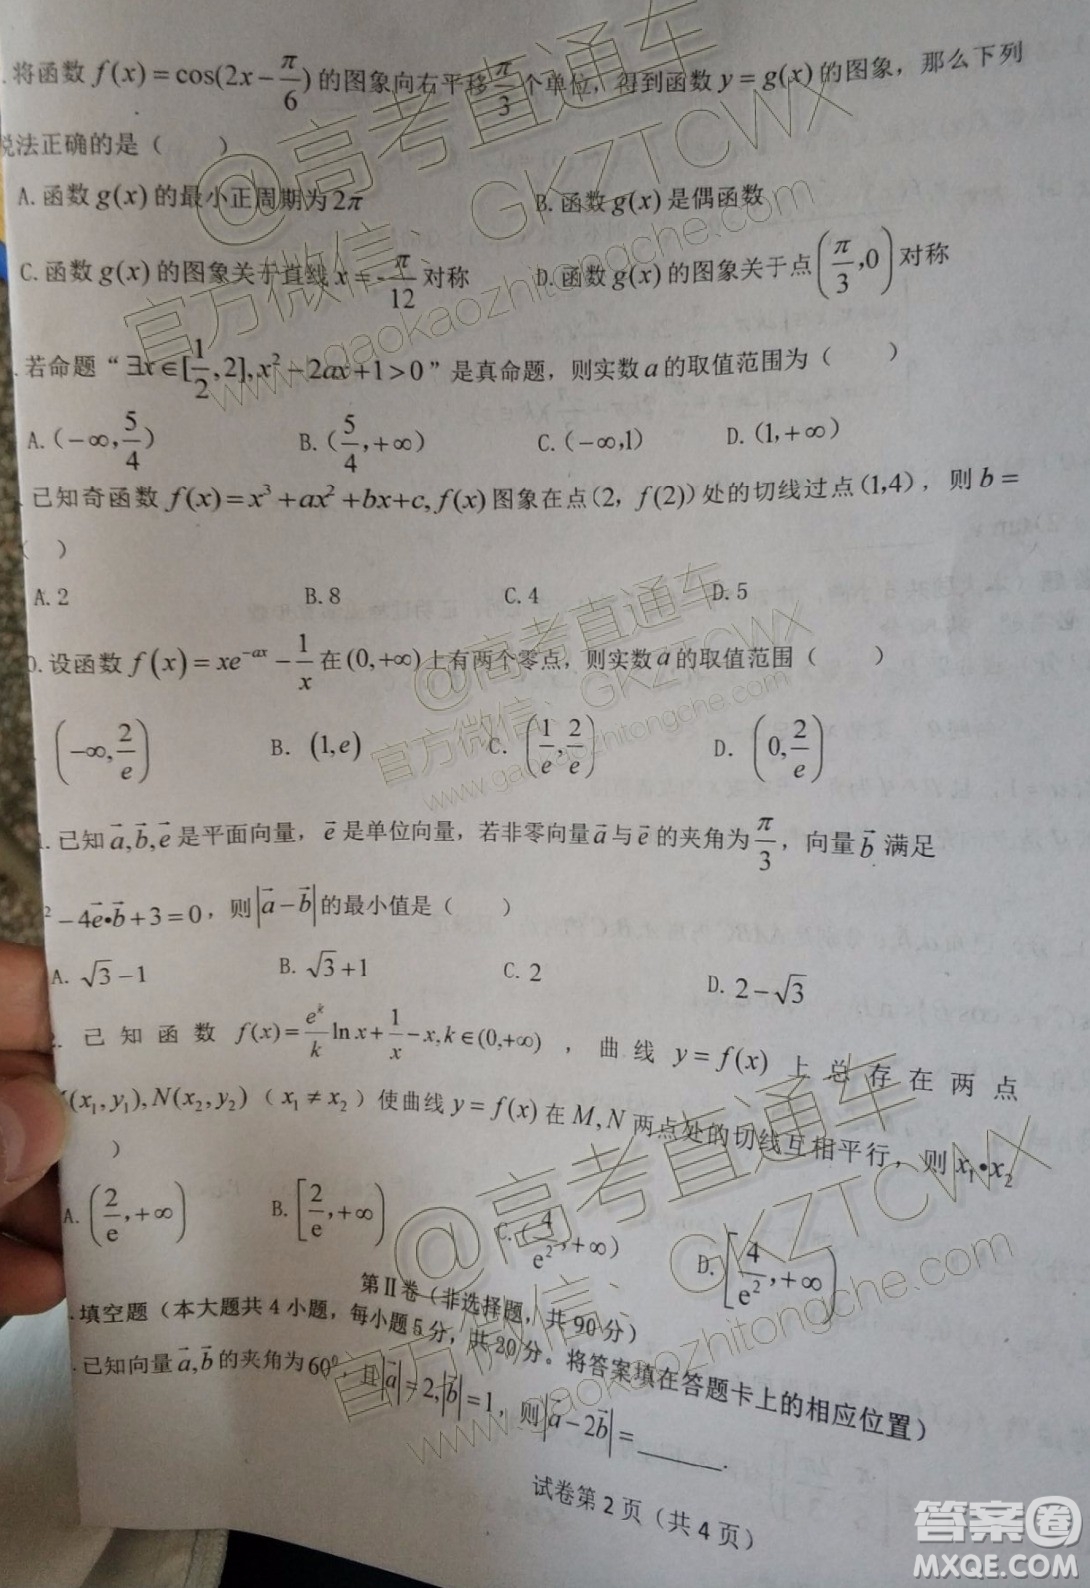 .将函数 f(x)=cos(2x-π/6) 的图象向右平移 π/3 个单位，得到函数 y=g(x) 的图象，那么下列
说法正确的是（ ）
A.函数 g(x) 的最小正周期为 2π B.函数 g(x) 是偶函数
C.函数 g(x) 的图象关于直线 x=-π/12 对称 D.函数 g(x) 的图象关于点 (π/3,0) 对称
.若命题“∃x∈[1/2,2],x²-2ax+1>0”是真命题，则实数 a 的取值范围为（ ）
A.(-∞,5/4) B.(5/4,+∞) C.(-∞,1) D.(1,+∞)
.已知奇函数 f(x)=x³+ax²+bx+c,f(x) 图象在点(2，f(2))处的切线过点(1,4)，则 b=
（ ）
A.2 B.8 C.4 D.5
0.设函数 f(x)=xe^(-ax)-1/x 在(0,+∞)上有两个零点，则实数 a 的取值范围（ ）
. (-∞,2/e) B. (1,e) C. (1/e,2/e) D. (0,2/e)
1.已知 a⃗,b⃗,e⃗ 是平面向量，e⃗ 是单位向量，若非零向量 a⃗ 与 e⃗ 的夹角为 π/3，向量 b⃗ 满足
²-4e⃗•b⃗+3=0，则|a⃗-b⃗|的最小值是（ ）
A. √3-1 B. √3+1 C. 2 D. 2-√3
2. 已知函数 f(x)=e^k/k lnx+1/x-x,k∈(0,+∞)，曲线 y=f(x) 上总存在两点
M(x₁,y₁),N(x₂,y₂)（x₁≠x₂）使曲线 y=f(x) 在 M,N 两点处的切线互相平行，则 x₁•x₂
）
A. (2/e,+∞) B. [2/e,+∞) C. (4/e²,+∞) D. [4/e²,+∞)
第Ⅱ卷（非选择题，共90分）
.填空题（本大题共4小题，每小题5分，共20分。将答案填在答题卡上的相应位置）
.已知向量 a⃗,b⃗ 的夹角为60°，且|a⃗|=2,|b⃗|=1，则|a⃗-2b⃗|=______.
试卷第2页（共4页）
@高考直通车
官方微信：GKZTCWX
www.gaokaozhitongche.com
@高考直通车
官方微信：GKZTCWX
www.gaokaozhitongche.com
@高考直通车
官方微信：GKZTCWX
www.gaokaozhitongche.com
答案圈
MXQE.COM